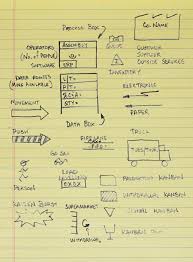 PROCESS BOX
CO. NAME
OPERATORS
(NO. OF PEOPLE)
SOFTWARE
ASSEMBLY
ERP
CUSTOMER
SUPPLIER
OUTSIDE SERVICES
DATA BOXES
INVENTORY
ELECTRONIC
PAPER
MOVEMENT
DATA BOX
PUSH
TRUCK
GO SEE
PERSON
LOAD
LEVELING
OXOX
PRODUCTION KANBAN
WITHDRAWAL KANBAN
SIGNAL KANBAN
KAIZEN BURST
SUPERMARKET
WITHDRAWAL
KANBAN